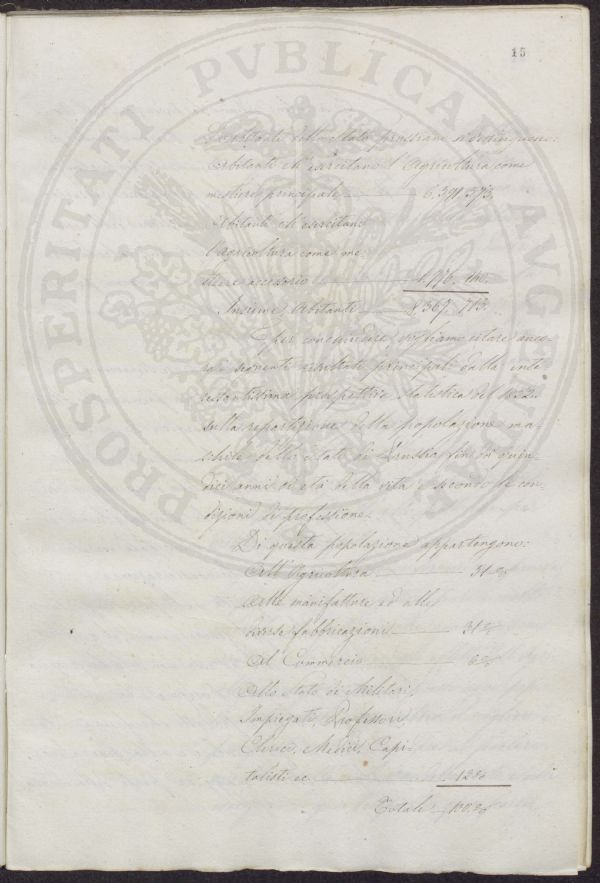 15
PROSPERITATI PVBLICAE AVGENDAE
dello Stato prussiano si distinguono:
Abitanti ch'esercitano l'Agricoltura come
mestiere principale 6,391.573.
Abitanti ch'esercitano
l'agricoltura come me
stiere accessorio
Insieme Abitanti 8,367.713.
E per conchiudere vogliamo citare anco-
ra i seguenti risultati principali dalla inte
ressantissima prospettiva statistica del 1852
sulla repartizione della popolazione ma-
schile dello Stato di Prussia fin di quin-
dici anni di età della vita e secondo le con-
dizioni di professione.
Di questa popolazione appartengono:
All'Agricoltura
Alle manifatture ed alle
diverse fabbricazioni
Al Commercio
Allo stato di Militari,
Impiegati, Professori
Clerici, Medici, Capi-
talisti ec.
Totale